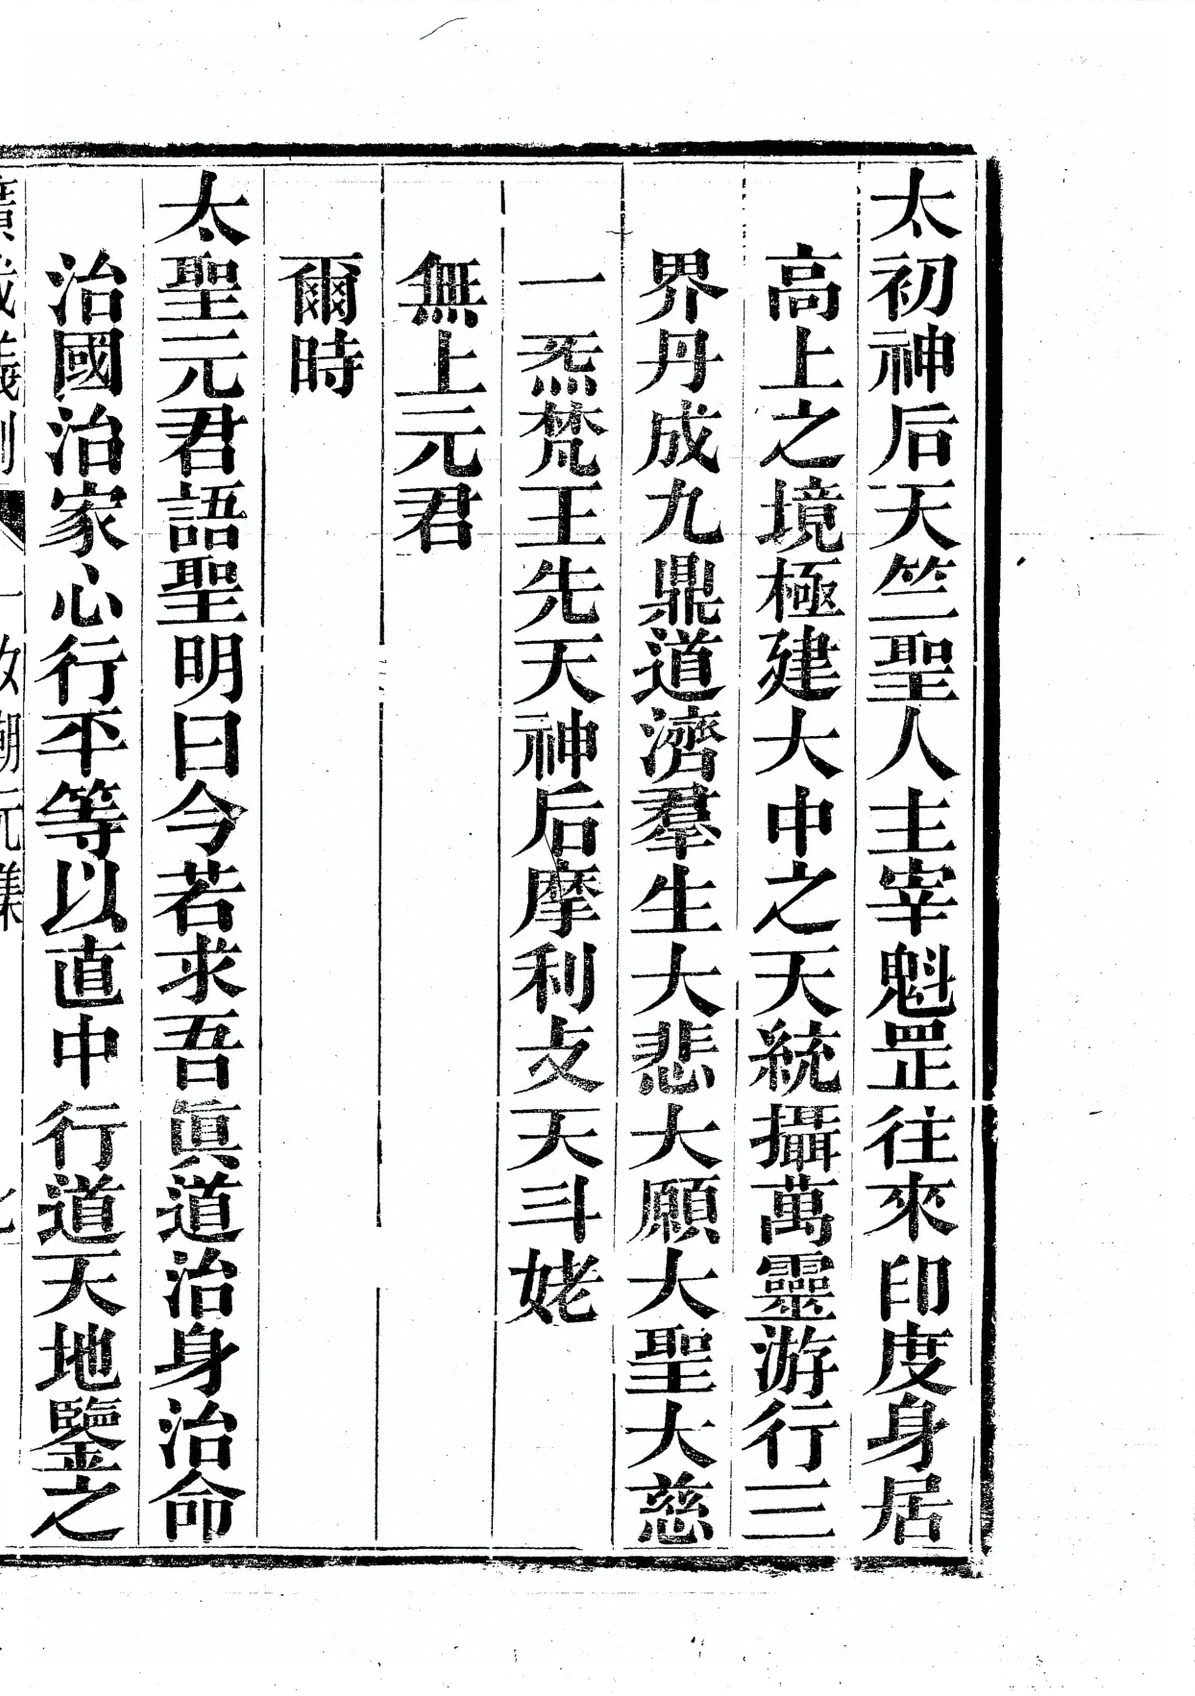 太初神后天竺聖人主宰魁罡往來印度身居
高上之境極建大中之天統攝萬靈游行三
界丹成九鼎道濟羣生大悲大願大聖大慈
一炁梵王先天神后摩利攴天斗姥
無上元君
爾時
太聖元君語聖明曰今若求吾眞道治身治命
治國治家心行平等以直中行道天地鑒之